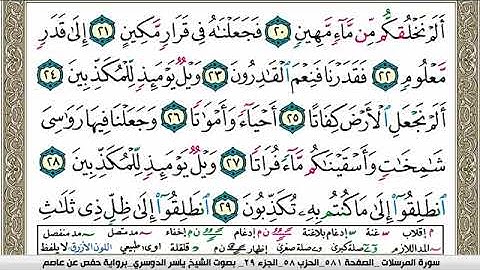 أَلَمْ نَخْلُقكُّم مِّن مَّآءٍ مَّهِينٍ ٢٠ فَجَعَلْنَٰهُ فِى قَرَارٍ مَّكِينٍ ٢١ إِلَىٰ قَدَرٍ
مَّعْلُومٍ ٢٢ فَقَدَرْنَا فَنِعْمَ ٱلْقَٰدِرُونَ ٢٣ وَيْلٌ يَوْمَئِذٍ لِّلْمُكَذِّبِينَ ٢٤
أَلَمْ نَجْعَلِ ٱلْأَرْضَ كِفَاتًا ٢٥ أَحْيَآءً وَأَمْوَٰتًا ٢٦ وَجَعَلْنَا فِيهَا رَوَٰسِىَ
شَٰمِخَٰتٍ وَأَسْقَيْنَٰكُم مَّآءً فُرَاتًا ٢٧ وَيْلٌ يَوْمَئِذٍ لِّلْمُكَذِّبِينَ ٢٨
ٱنطَلِقُوٓا۟ إِلَىٰ مَا كُنتُم بِهِۦ تُكَذِّبُونَ ٢٩ ٱنطَلِقُوٓا۟ إِلَىٰ ظِلٍّ ذِى ثَلَٰثِ
م إقلاب غنة إدغام بلاغنة ن م إدغام ن م إخفاء مد متصل مد منفصل
المد اللازم صلة كبرى وصلة صغرى إظهار ن م قلقلة اوى طبيعي اللون الأزرق لا يلفظ
سورة المرسلات _ الصفحة ٥٨١_ الحزب ٥٨_ الجزء ٢٩_ بصوت الشيخ ياسر الدوسري_ برواية حفص عن عاصم